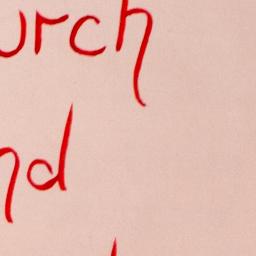 urch
nd